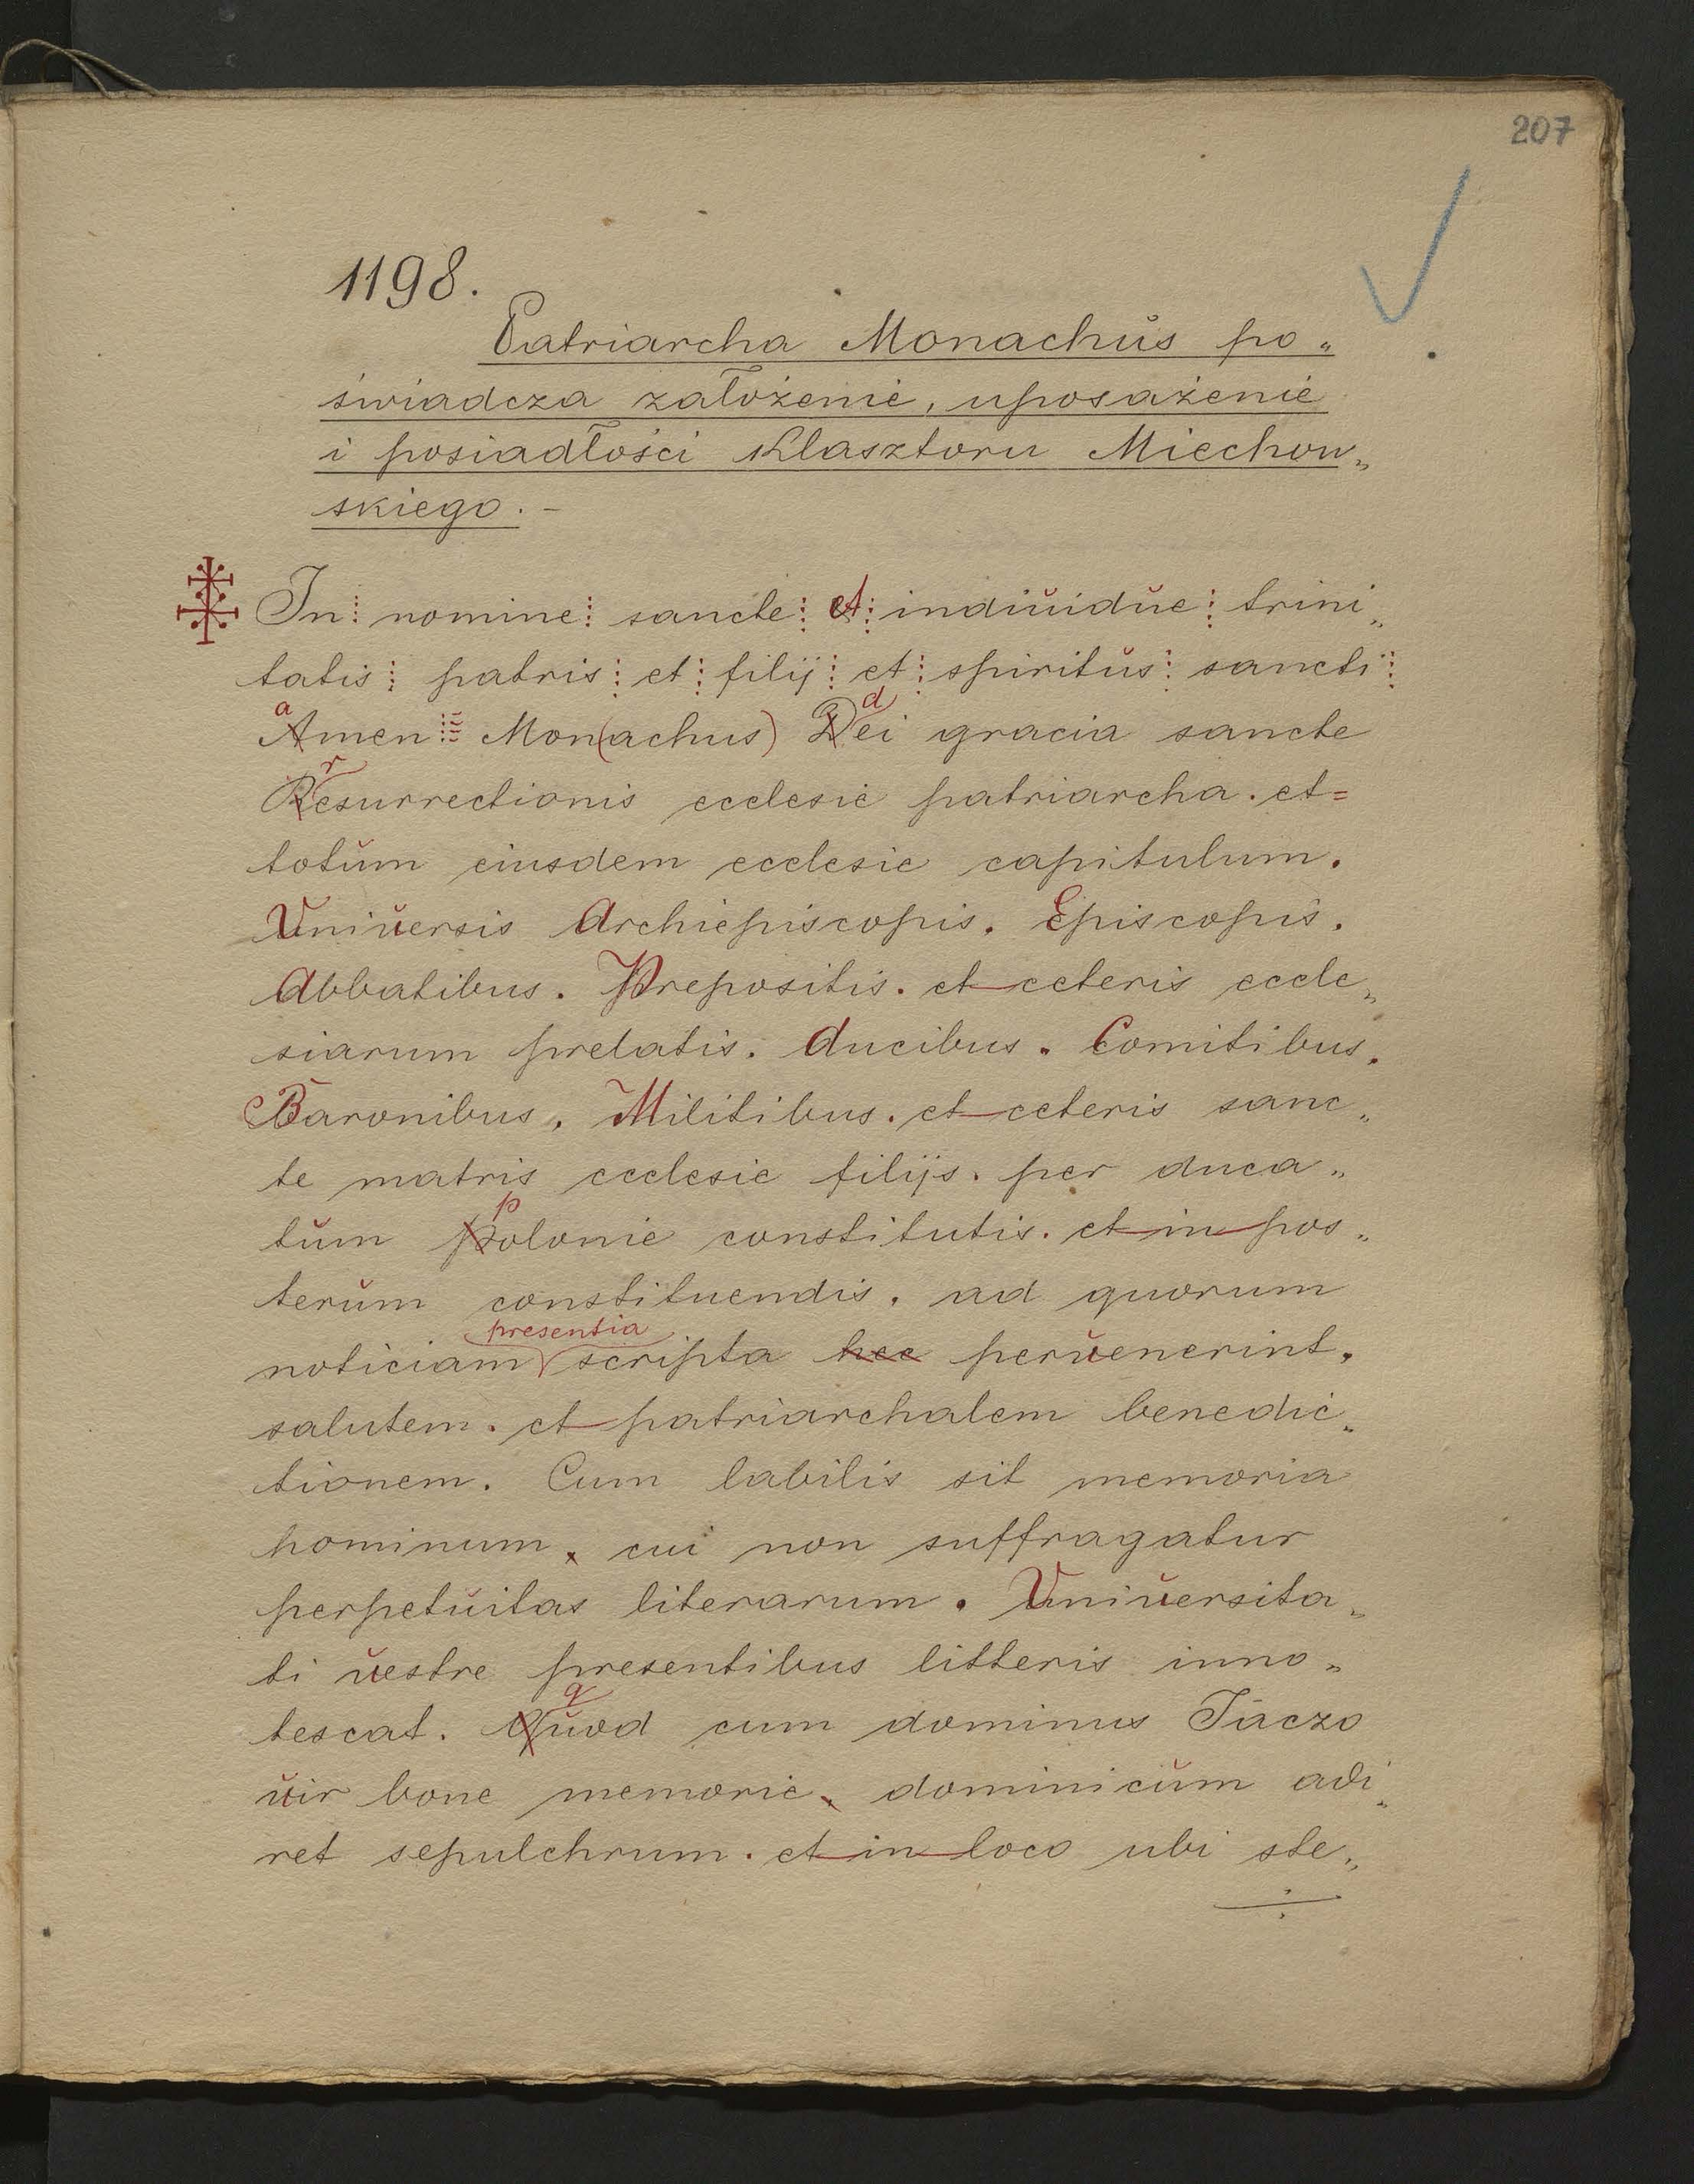 207
1198.
Patriarcha Monachŭs po„
świadcza założenie, uposażenie
i posiadłości Klasztoru Miechow„
skiego. –
In⋮ nomine⋮ sancte⋮ et⋮ indiŭidŭe⋮ trini„
tatis⋮ patris⋮ et⋮ filij⋮ et⋮ spiritŭs⋮ sancti⋮
a d
Amen⋮ Mon(achus) Dei gracia sancte
r
Resurrectionis ecclesie patriarcha. et=
totŭm eiusdem ecclesie capitulum.
Uniŭersis Archiepiscopis. Episcopis.
Abbatibus. Prepositis. et ceteris eccle„
siarum prelatis. ducibus. Comitibus.
Baronibus. Militibus. et ceteris sanc„
te matris ecclesie filijs. per duca„
p
tŭm Polonie constitutis. et in pos„
terŭm constituendis. ad quorum
presentia
noticiam scripta hec perŭenerint.
salutem. et patriarchalem benedic„
tionem. Cum labilis sit memoria
hominum. cui non suffragatur
perpetŭitas literarum. Uniŭersita„
ti ŭestre presentibus litteris inno„
q
tescat. Qŭod cum dominus Jaczo
ŭir bone memorie. dominicŭm adi„
ret sepulchrum. et in loco ubi ste„